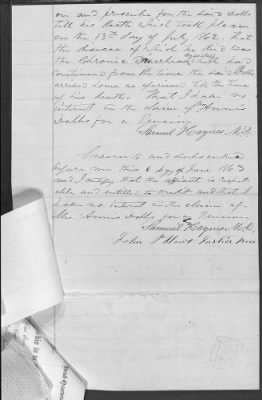 on and prescribe for the said Dobbs
till his death which took place
on the 13th day of July 1862. that
the disease of which he died was
the Chronic Diarrhea which had
continued from the time the said Dobbs
arrived home as aforesaid till the time
of his death. That I have no
interest in the claim of Annis
Dobbs for a Pension
Samuel Haynes M.D.
Sworn to and subscribed
before me this 6 day of June 1863
and I certify that the affiant is respect
able and entitled to credit and that I
have no interest in the claim of
Mrs Annis Dobbs for a Pension.
Samuel Haynes M.D.
John Justice Peace